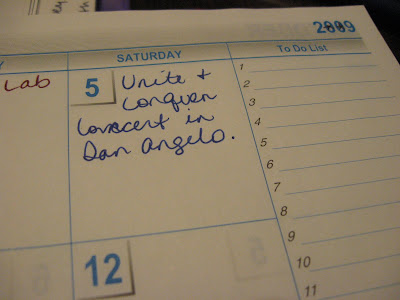 2009
SATURDAY
To Do List
Lab
5
Unite +
Conquer
Concert in
San Angelo.
12
1
2
3
4
5
6
7
8
9
10
11